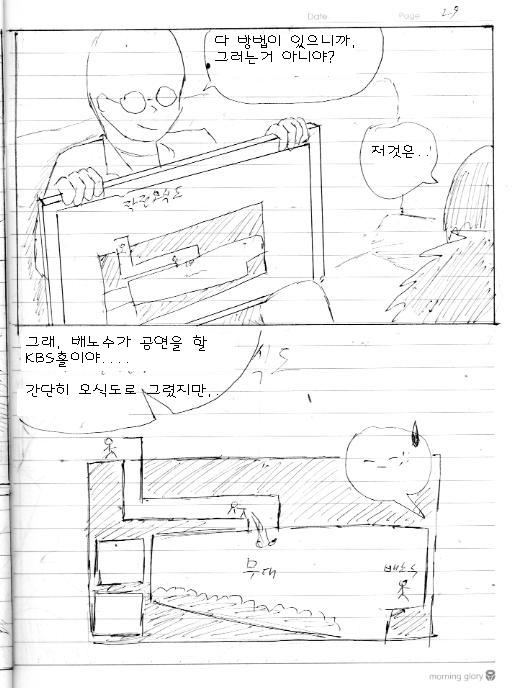 Date
Page 29
다 방법이 있으니까,
그러는거 아니야?
저것은..!
그래, 배노수가 공연을 할
KBS홀이야....
간단히 모식도로 그렸지만,
식도
무대
배노수
morning glory